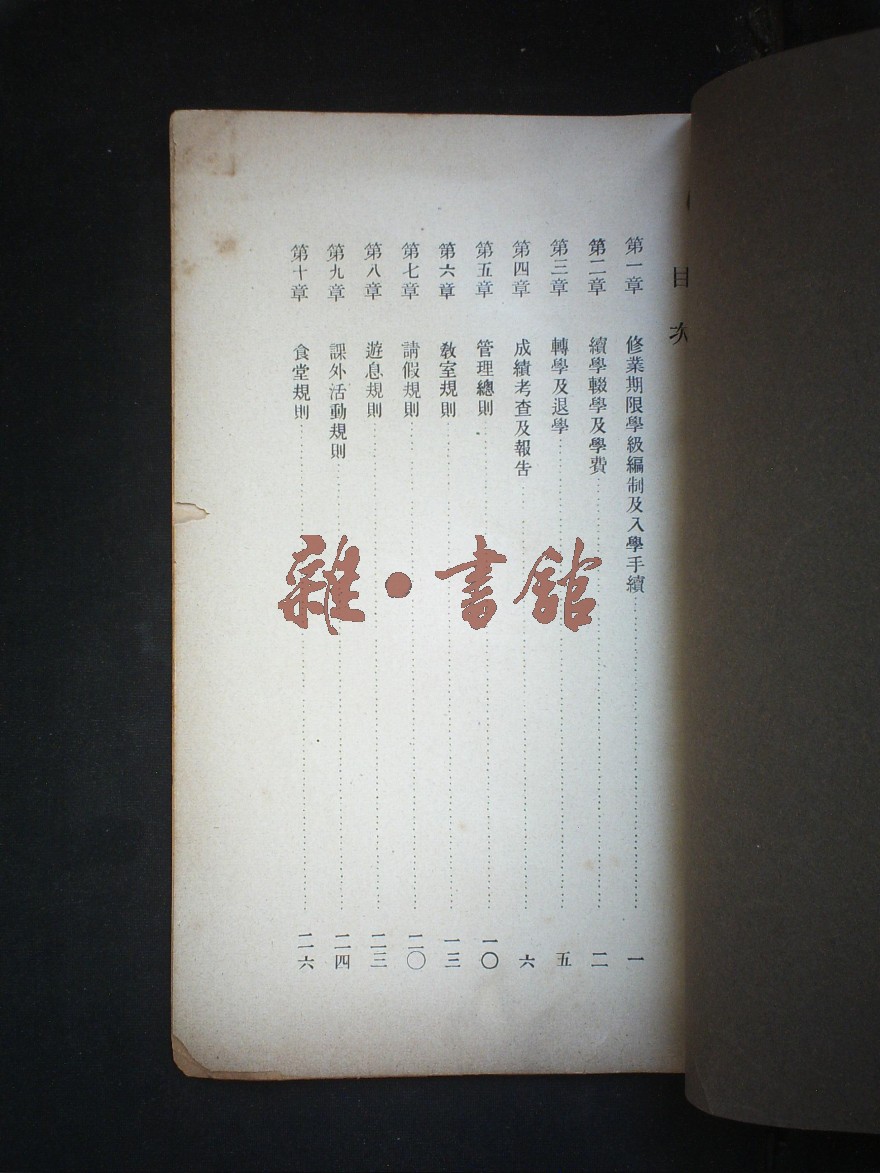 目次
第一章 修業期限學級編制及入學手續 一
第二章 續學輟學及學費 二
第三章 轉學及退學 五
第四章 成績考查及報告 六
第五章 管理總則 一〇
第六章 教室規則 一三
第七章 請假規則 二〇
第八章 遊息規則 二三
第九章 課外活動規則 二四
第十章 食堂規則 二六
雜·書館